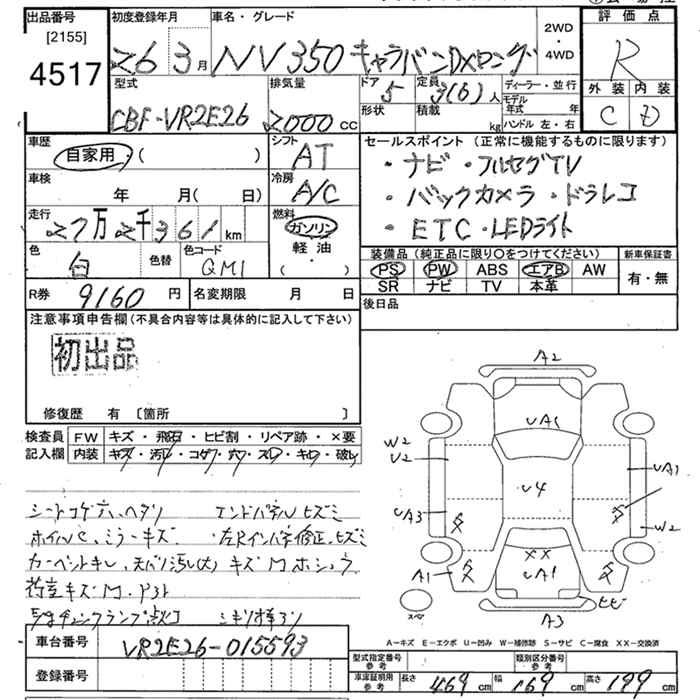 出品番号 初度登録年月 車名・グレード 評価点
[2155] 26 3月 NV350 キャラバンDXロング 2WD・4WD R
4517 型式 排気量 ドア 定員 ディーラー・並行 外装 内装
CBF-VR2E26 2000cc 5 3(6)人 モデル年式 年 C D
形状 積載 kg ハンドル 左・右
車歴 シフト セールスポイント(正常に機能するものに限ります)
自家用・( ) AT ・ナビ・フルセグTV
車検 冷房 ・バックカメラ・ドラレコ
年 月( 日) A/C ・ETC・LEDライト
走行 燃料
27万2千361km ガソリン
軽油
・( )
色 色替 色コード 装備品(純正品に限り○をつけてください) 新車保証書
白 QM1 PS PW ABS エアB AW 有・無
SR ナビ TV 本革
R券 9160円 名変期限 月 日 後日品
注意事項申告欄(不具合内容等は具体的に記入して下さい)
初出品
修復歴 有 〔箇所 〕
検査員 FW キズ・飛石・ヒビ割・リペア跡・×要
記入欄 内装 キズ・汚レ・コゲ・穴・スレ・キレ・破レ
シートコゲ穴、ヘタリ エンドパネルヒズミ
ホイルC、ミラーキズ 左Rインパネ修正、ヒズミ
カーペットキレ、天バリ汚レ(大) キズMホシュウ
荷室キズM
A2
UA1
W2
U2
UA1
U4
UA3
W2
××
A1
UA1
ヒビ
A3
A=キズ E=エクボ U=凹み W=補修跡 S=サビ C=腐食 XX=交換済
車台番号 VR2E26-015593
登録番号
型式指定番号 参考 類別区分番号 参考
車庫証明用 参考 長さ 469cm 幅 169cm 高さ 199cm